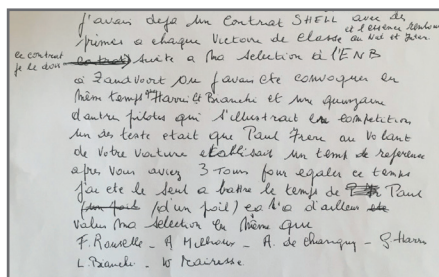 j'avais deja un contrat SHELL avec des
primes a chaque Victoire de classe et l'essence rembour
au Nat et Inter.
ce contrat
je le dois suite a Ma Selection à l'ENB
a Zandvoort ou j'avais ete convoquer en
même temps Harris et Bianchi et une quinzaine
d'autre pilotes qui s'illustrait en competition
un des teste etait que Paul Frere au Volant
de Votre Voiture etablissait un temps de reference
apres Vous aviez 3 Tours pour egaler ce temps
j'ai ete le seul a battre le temps de Paul
(d'un poil) ca m'a d'ailleur
value Ma selection en Même que
F. Rouselle - A Milhoux - A. de Changy - G Harris
L. Bianchi - W Mairesse